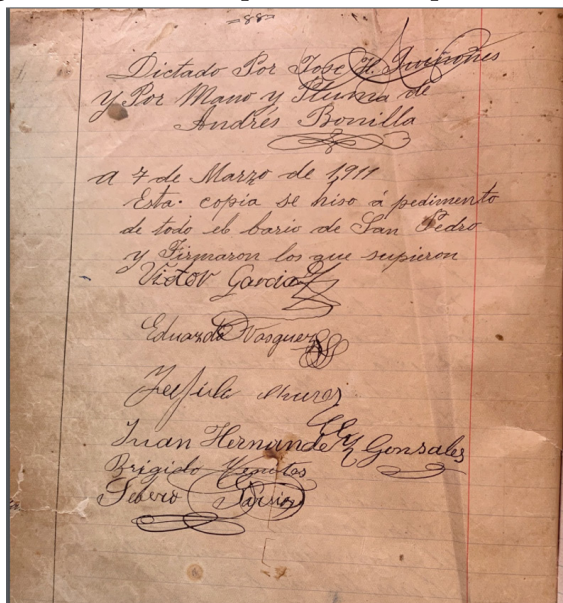 =88=
Dictado Por Jose H. Quiñones
Y Por Mano y Pluma de
Andres Bonilla
a 7 de Marzo de 1911
Esta. copia se hiso á pedimento
de todo el bario de San Pedro
y Firmaron los que supieron
Victor Garcia
Eduardo Vasquez
Juan Hernandez Gonsales
Brigido